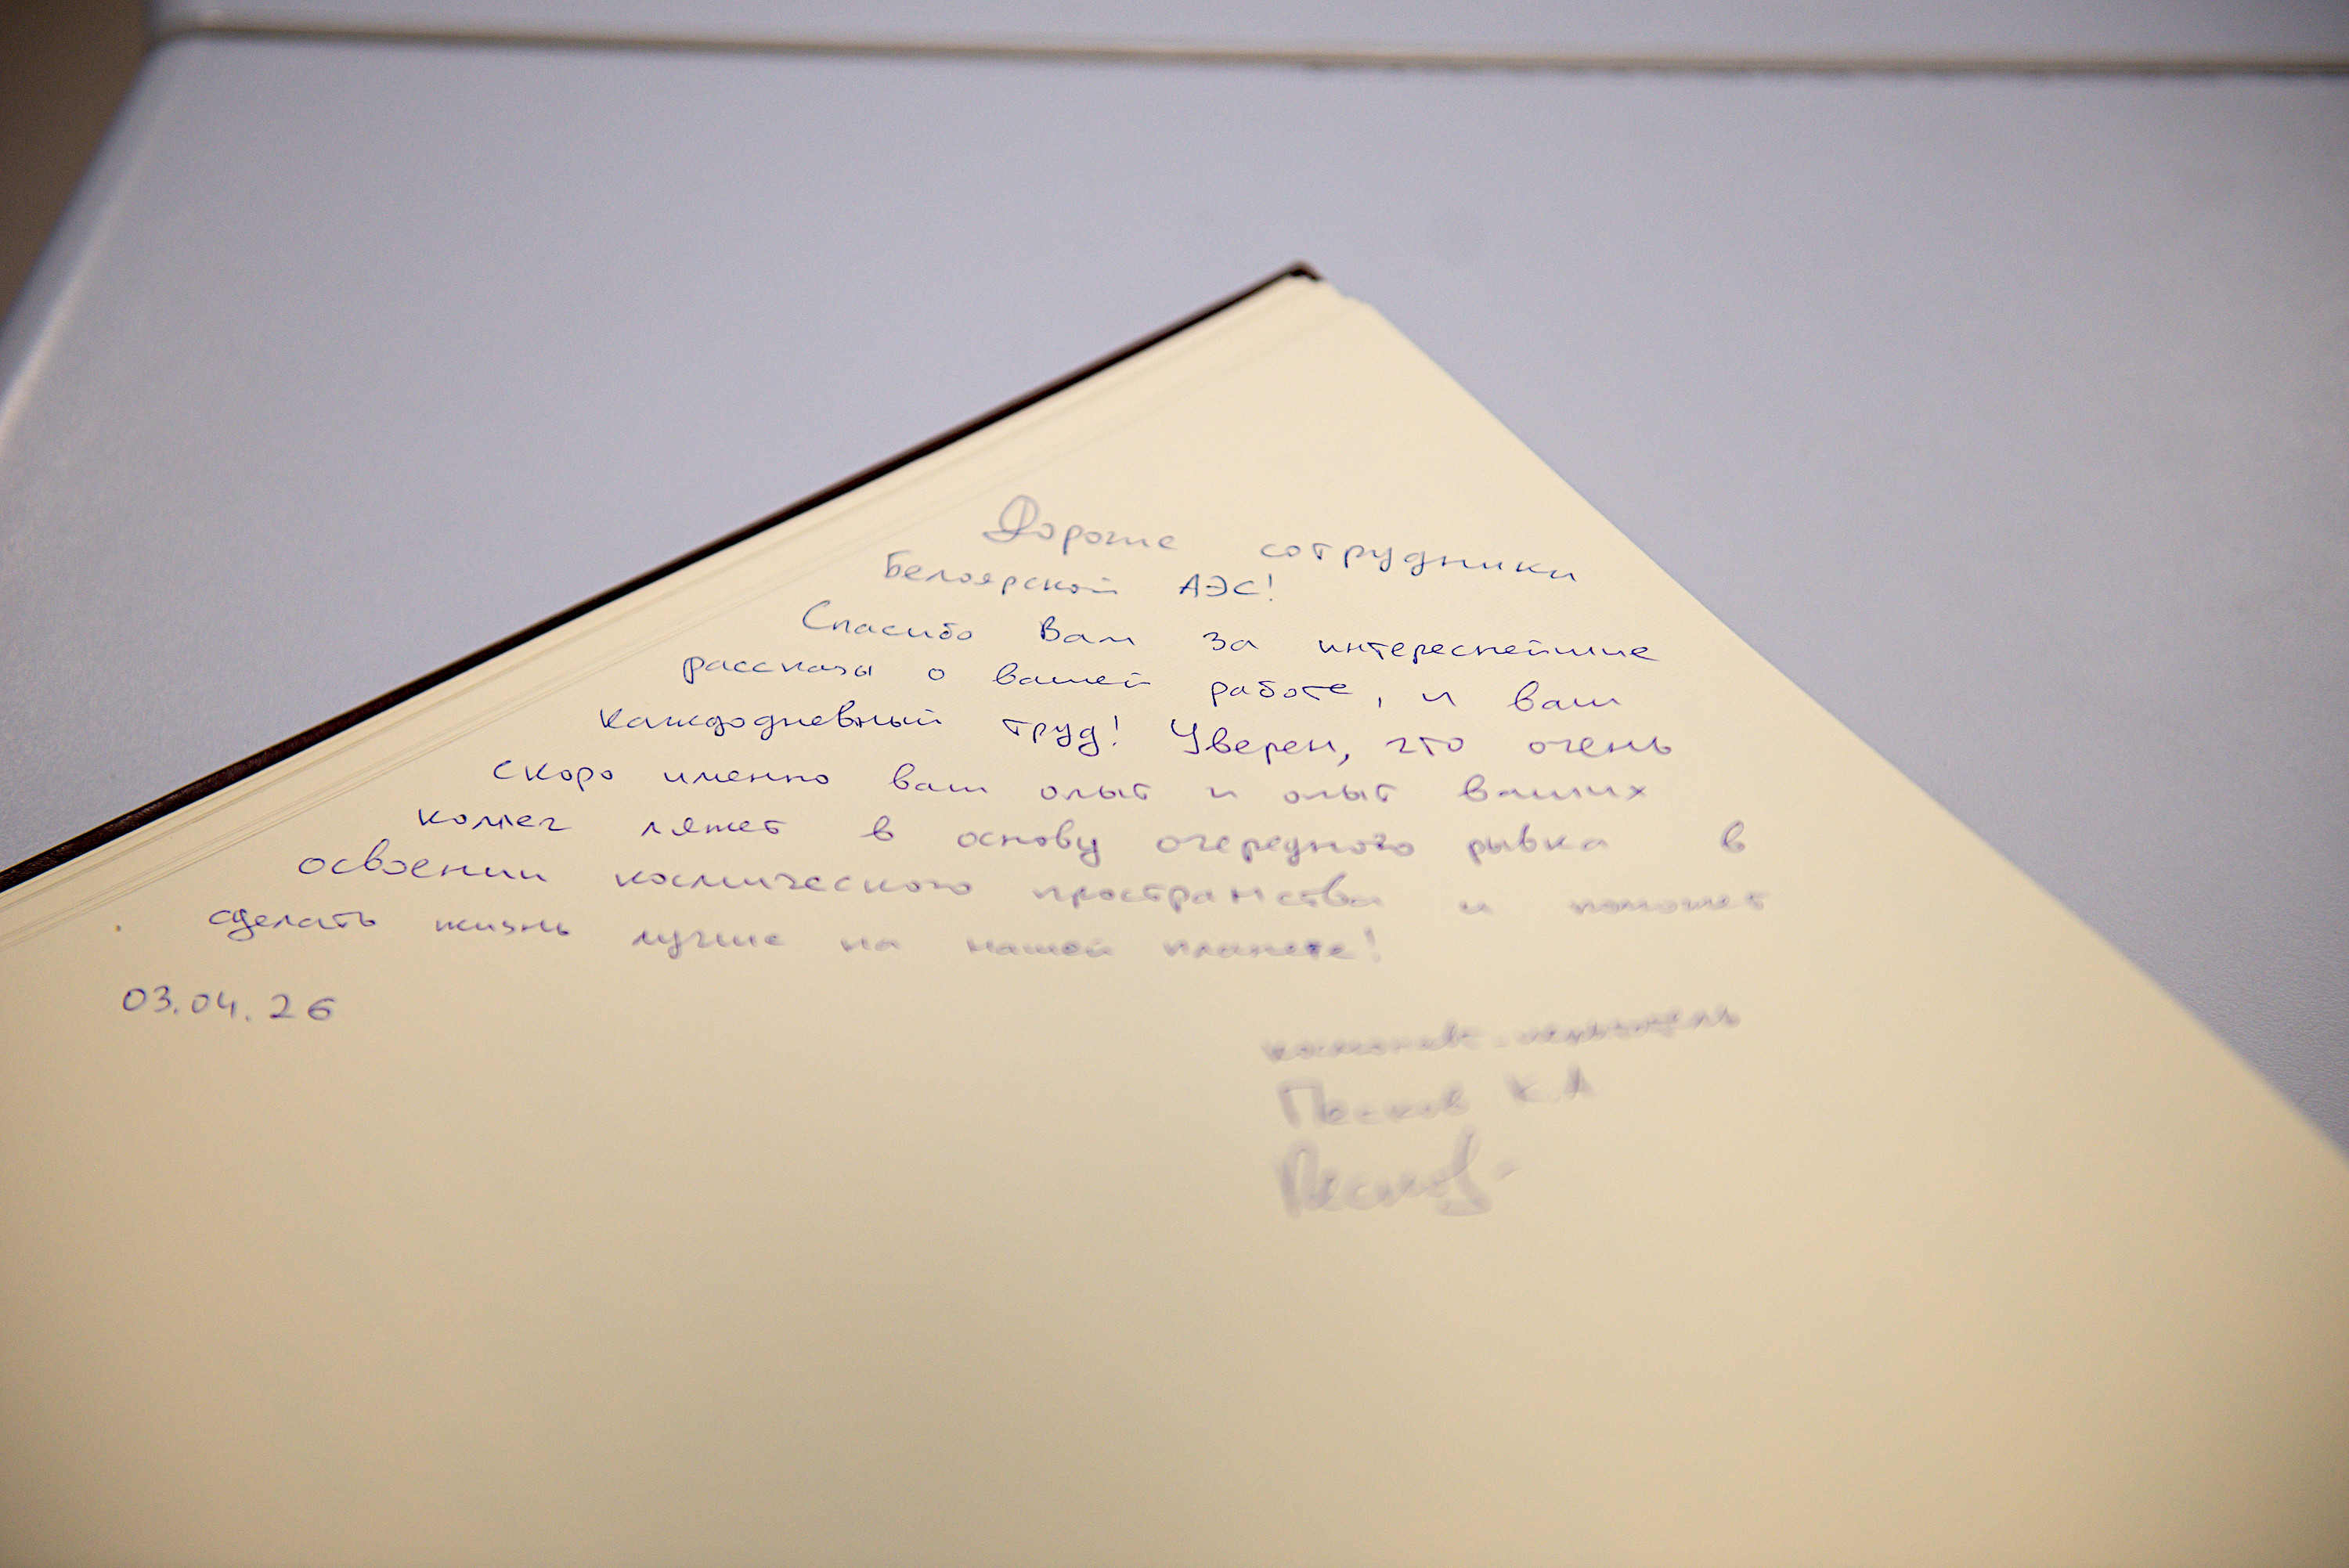 Дорогие сотрудники
Белоярской АЭС!
Спасибо Вам за интереснейшие
рассказы о вашей работе, и ваш
каждодневный труд! Уверен, что очень
скоро именно ваш опыт и опыт ваших
коллег ляжет в основу очередного рывка в
освоении космического пространства и поможет
сделать жизнь лучше на нашей планете!
03.04.26
космонавт-испытатель
Песков К.А
Песков